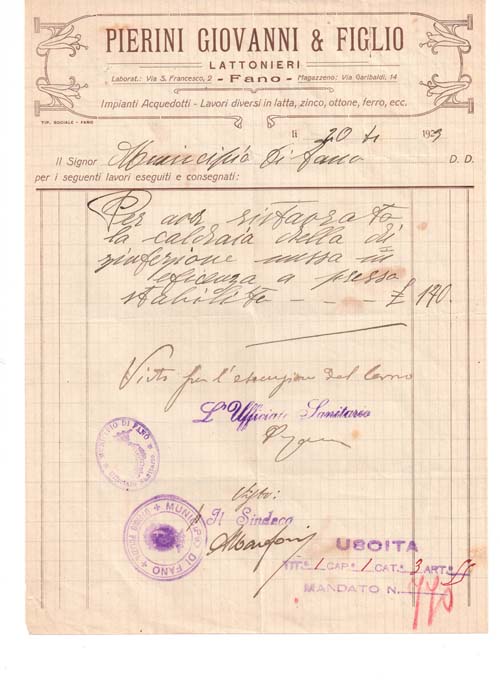 PIERINI GIOVANNI & FIGLIO
LATTONIERI
Laborat.: Via S. Francesco, 2 - Fano - Magazzeno: Via Garibaldi, 14
Impianti Acquedotti - Lavori diversi in latta, zinco, ottone, ferro, ecc.
TIP. SOCIALE - FANO
li 20 192
Il Signor Municipio di Fano D. D.
per i seguenti lavori eseguiti e consegnati:
Per aver ristaorato
la caldraia della di
zinfezione messa in
eficenza a presso
stabilito - - - £ 140.
Visto per l'
L'Ufficiale Sanitario
MUNICIPIO DI FANO
UFFICIO SANITARIO
Visto:
Il Sindaco
MUNICIPIO DI FANO
USCITA
TIT.° 1 CAP.° 1 CAT.° 3 ART.°
MANDATO N.